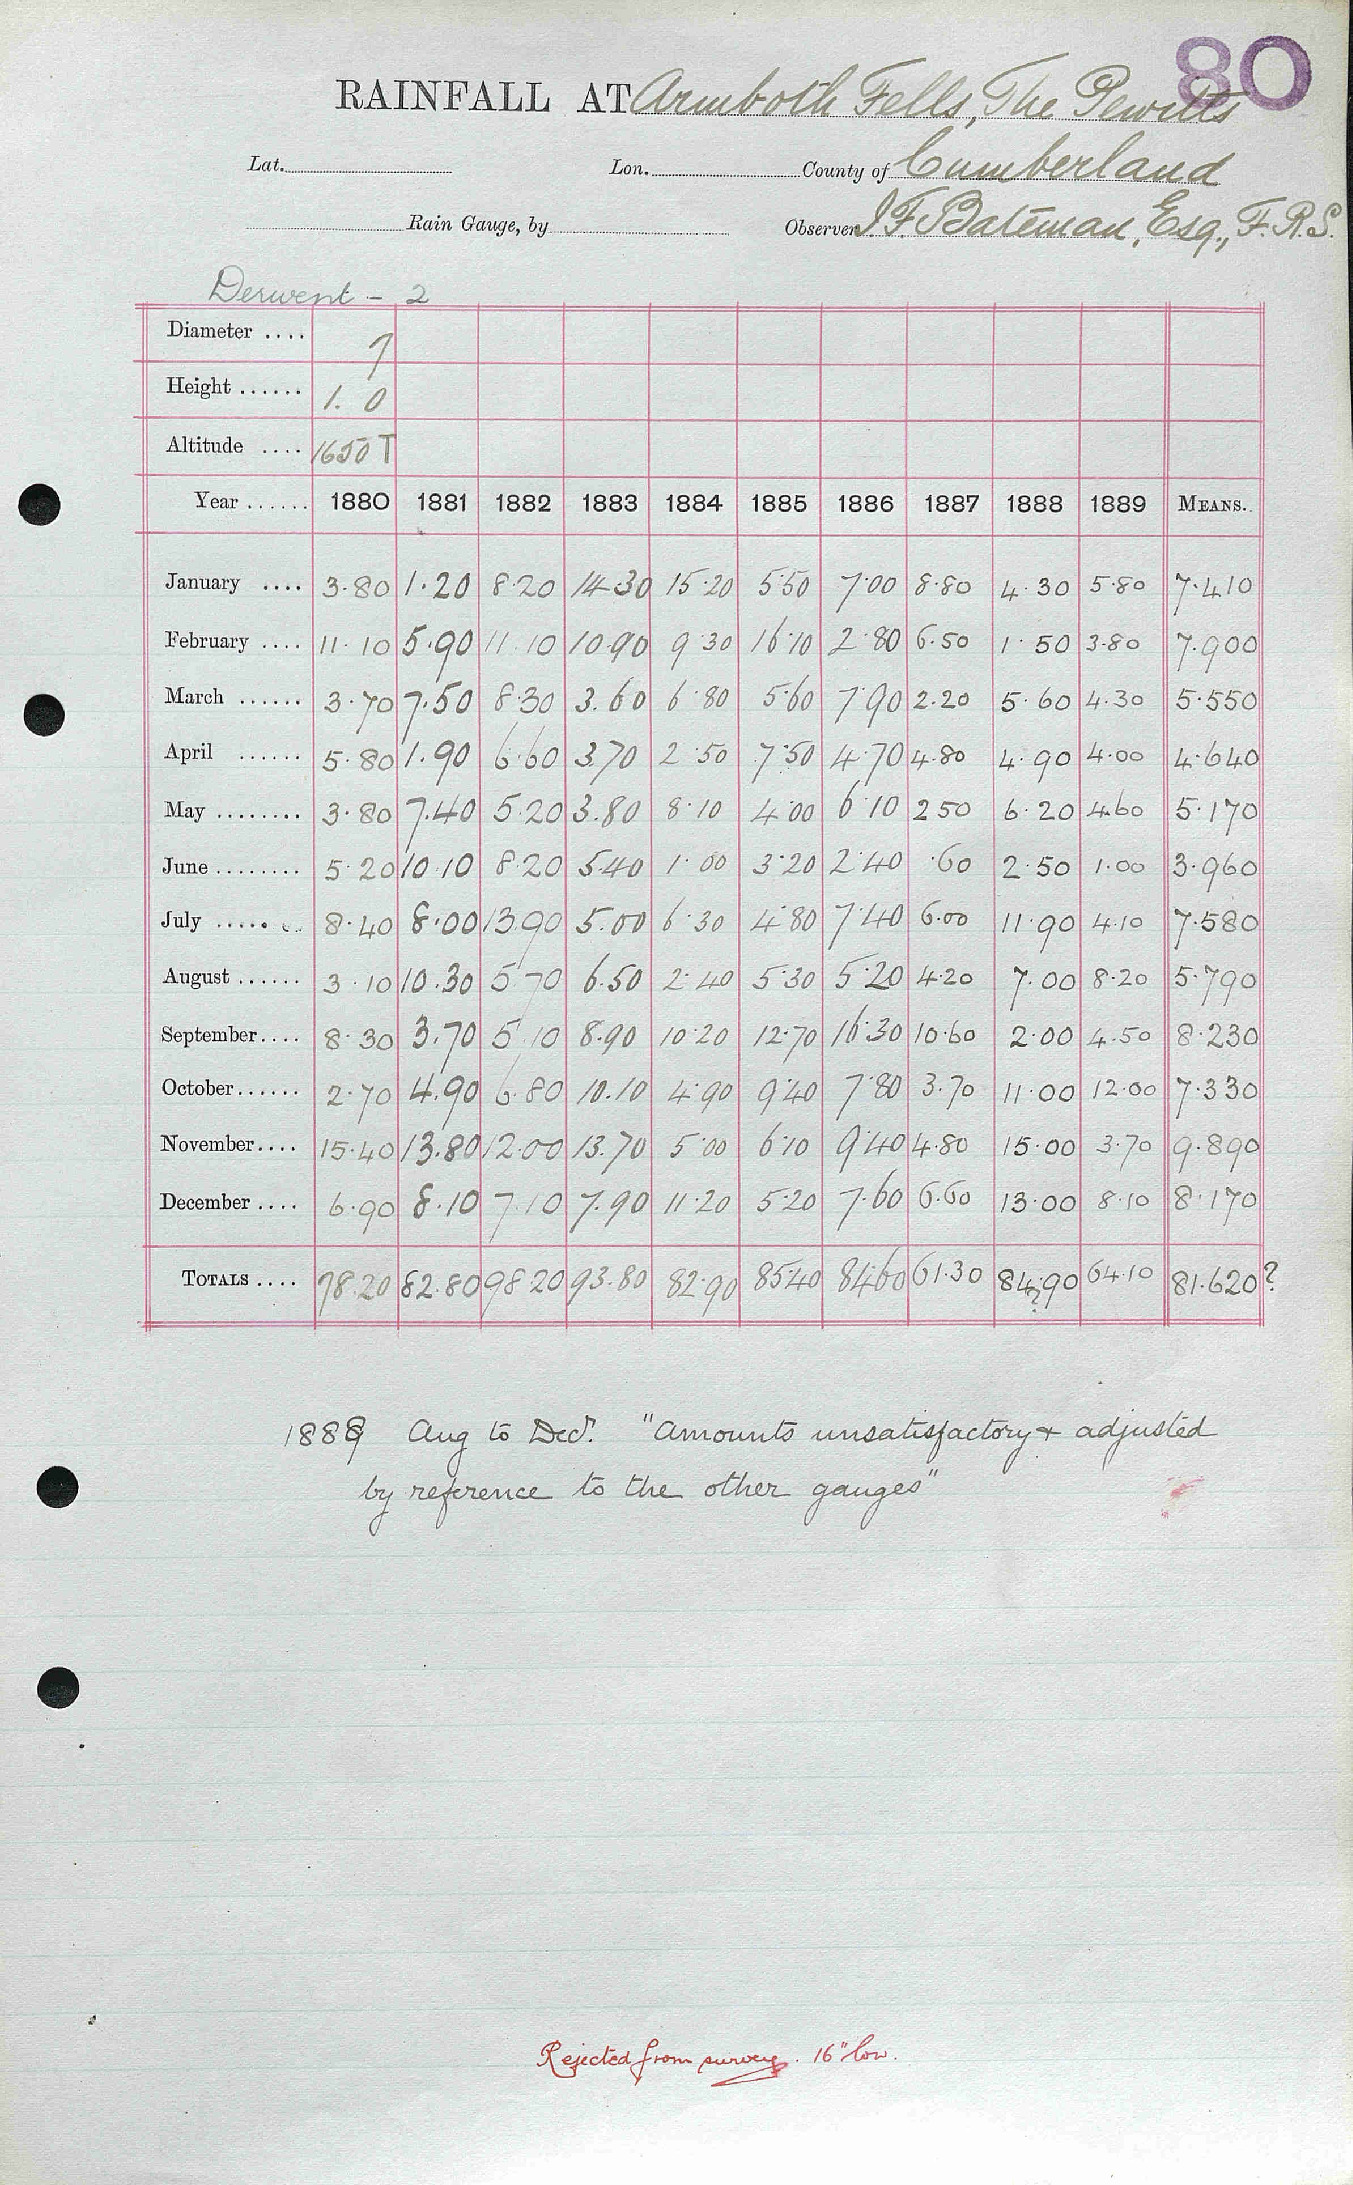 80
RAINFALL AT Armboth Fells, The Pewitts
Lat. Lon. County of Cumberland
Rain Gauge, by Observer J F Bateman, Esq., F.R.S.
Derwent - 2
Diameter .... 7
Height ...... 1. 0
Altitude .... 1650 T
Year ...... 1880 1881 1882 1883 1884 1885 1886 1887 1888 1889 MEANS..
January .... 3.80 1.20 8.20 14.30 15.20 5.50 7.00 8.80 4.30 5.80 7.410
February .... 11.10 5.90 11.10 10.90 9.30 16.10 2.80 6.50 1.50 3.80 7.900
March ...... 3.70 7.50 8.30 3.60 6.80 5.60 7.90 2.20 5.60 4.30 5.550
April ...... 5.80 1.90 6.60 3.70 2.50 7.50 4.70 4.80 4.90 4.00 4.640
May ........ 3.80 7.40 5.20 3.80 8.10 4.00 6.10 2.50 6.20 4.60 5.170
June ........ 5.20 10.10 8.20 5.40 1.00 3.20 2.40 .60 2.50 1.00 3.960
July ........ 8.40 8.00 13.90 5.00 6.30 4.80 7.40 6.00 11.90 4.10 7.580
August ...... 3.10 10.30 5.70 6.50 2.40 5.30 5.20 4.20 7.00 8.20 5.790
September.... 8.30 3.70 5.10 8.90 10.20 12.70 16.30 10.60 2.00 4.50 8.230
October...... 2.70 4.90 6.80 10.10 4.90 9.40 7.80 3.70 11.00 12.00 7.330
November.... 15.40 13.80 12.00 13.70 5.00 6.10 9.40 4.80 15.00 3.70 9.890
December .... 6.90 8.10 7.10 7.90 11.20 5.20 7.60 6.60 13.00 8.10 8.170
TOTALS .... 78.20 82.80 98.20 93.80 82.90 85.40 84.60 61.30 84.90 64.10 81.620?
?
1888 Aug to Decr. "Amounts unsatisfactory & adjusted
by reference to the other gauges"
Rejected from survey. 16" low.